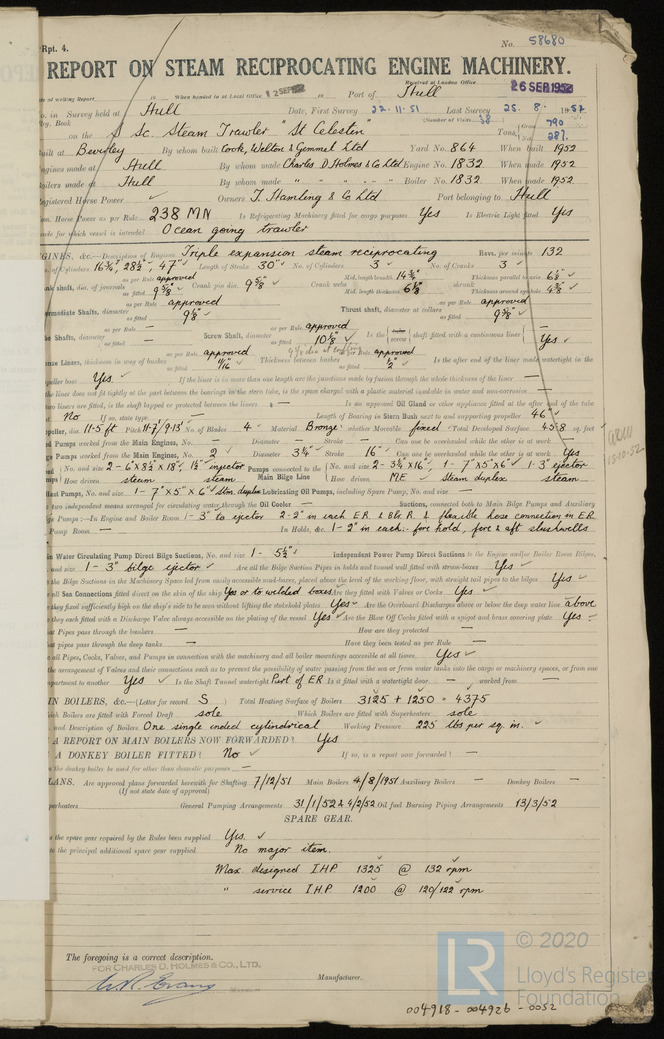 Rpt. 4.
No. 58680
REPORT ON STEAM RECIPROCATING ENGINE MACHINERY.
Received at London Office 26 SEP 1952
Date of writing Report When handed in at Local Office 12 SEP 1952 Port of Hull
No. in Survey held at Hull Date, First Survey 22.11.51 Last Survey 25. 8. 1952
Reg. Book (Number of Visits 38)
on the S Sc Steam Trawler "St Celestin" Tons Gross 790 Net 287.
Built at Beverley By whom built Cook, Welton & Gemmell Ltd Yard No. 864 When built 1952
Engines made at Hull By whom made Charles D Holmes & Co Ltd Engine No. 1832 When made 1952
Boilers made at Hull By whom made " " - " - " Boiler No. 1832 When made 1952
Registered Horse Power ✓ Owners T. Hamling & Co Ltd Port belonging to Hull
Nom. Horse Power as per Rule 238 MN Is Refrigerating Machinery fitted for cargo purposes Yes Is Electric Light fitted Yes
Trade for which vessel is intended Ocean going trawler
ENGINES, &c.—Description of Engines Triple expansion steam reciprocating Revs. per minute 132
No. of Cylinders 16¾", 28½", 47" Length of Stroke 30" No. of Cylinders 3 No. of Cranks 3
Crank shaft, dia. of journals as per Rule approved as fitted 9⅝" Crank pin dia. 9⅝" Crank webs Mid. length breadth 14¾" Mid. length thickness 6⅛" shrunk Thickness parallel to axis 6⅛" Thickness around eyehole 4⅜"
Intermediate Shafts, diameter as per Rule approved as fitted 9⅛" Thrust shaft, diameter at collars as per Rule approved as fitted 9⅝"
Tube Shafts, diameter as per Rule — as fitted — Screw Shaft, diameter as per Rule approved as fitted 10⅛" Is the screw shaft fitted with a continuous liner Yes
Bronze Liners, thickness in way of bushes as per Rule approved as fitted 11/16" Thickness between bushes as per Rule approved as fitted ½" Is the after end of the liner made watertight in the
propeller boss Yes If the liner is in more than one length are the junctions made by fusion through the whole thickness of the liner —
If the liner does not fit tightly at the part between the bearings in the stern tube, is the space charged with a plastic material insoluble in water and non-corrosive —
If two liners are fitted, is the shaft lapped or protected between the liners — Is an approved Oil Gland or other appliance fitted at the after end of the tube
No If so, state type — Length of Bearing in Stern Bush next to and supporting propeller 46"
Propeller, dia. 11.5 ft Pitch 11.7/9.13' No. of Blades 4 Material Bronze whether Moveable fixed Total Developed Surface 45.8 sq. feet
Feed Pumps worked from the Main Engines, No. — Diameter — Stroke — Can one be overhauled while the other is at work —
Bilge Pumps worked from the Main Engines, No. 2 Diameter 3¾" Stroke 16" Can one be overhauled while the other is at work Yes
Feed Pumps No. and size 2-6"x8½"x18", 1½" injector Pumps connected to the Main Bilge Line No. and size 2-3¾"x16", 1-7"x5"x6" 1-3" ejector
How driven steam steam How driven M.E. Steam duplex steam
Ballast Pumps, No. and size 1-7"x5"x6" Stm. duplex Lubricating Oil Pumps, including Spare Pump, No. and size —
Are two independent means arranged for circulating water through the Oil Cooler — Suctions, connected both to Main Bilge Pumps and Auxiliary
Bilge Pumps:—In Engine and Boiler Room 1-3" to ejector 2-2" in each E.R. & Blr R. & flexible hose connection in E.R.
In Pump Room — In Holds, &c. 1-2" in each: fore hold, fore & aft slushwells
Main Water Circulating Pump Direct Bilge Suctions, No. and size 1- 5½" Independent Power Pump Direct Suctions to the Engine and/or Boiler Room Bilges,
No. and size 1-3" bilge ejector Are all the Bilge Suction Pipes in holds and tunnel well fitted with strum-boxes Yes
Are the Bilge Suctions in the Machinery Space led from easily accessible mud-boxes, placed above the level of the working floor, with straight tail pipes to the bilges Yes
Are all Sea Connections fitted direct on the skin of the ship Yes or to welded boxes Are they fitted with Valves or Cocks Yes
Are they fixed sufficiently high on the ship's side to be seen without lifting the stokehold plates Yes Are the Overboard Discharges above or below the deep water line above
Are they each fitted with a Discharge Valve always accessible on the plating of the vessel Yes Are the Blow Off Cocks fitted with a spigot and brass covering plate Yes
What Pipes pass through the bunkers — How are they protected —
What pipes pass through the deep tanks — Have they been tested as per Rule —
Are all Pipes, Cocks, Valves, and Pumps in connection with the machinery and all boiler mountings accessible at all times Yes
Is the arrangement of Valves and their connections such as to prevent the possibility of water passing from the sea or from water tanks into the cargo or machinery spaces, or from one
compartment to another Yes Is the Shaft Tunnel watertight Part of ER Is it fitted with a watertight door — worked from —
MAIN BOILERS, &c.—(Letter for record S) Total Heating Surface of Boilers 3125 + 1250 = 4375
Which Boilers are fitted with Forced Draft sole Which Boilers are fitted with Superheaters sole
No. and Description of Boilers One single ended cylindrical Working Pressure 225 lbs per sq. in.
IS A REPORT ON MAIN BOILERS NOW FORWARDED? Yes
IS A DONKEY BOILER FITTED? No If so, is a report now forwarded? —
Is the donkey boiler intended to be used for other than domestic purposes —
PLANS. Are approved plans forwarded herewith for Shafting 7/12/51 Main Boilers 4/8/1951 Auxiliary Boilers — Donkey Boilers —
(If not state date of approval)
Superheaters General Pumping Arrangements 31/1/52 & 4/2/52 Oil fuel Burning Piping Arrangements 13/3/52
SPARE GEAR.
Has the spare gear required by the Rules been supplied Yes.
State the principal additional spare gear supplied No major item.
Max designed I.H.P. 1325 @ 132 rpm
" service I.H.P. 1200 @ 120/122 rpm
The foregoing is a correct description.
FOR CHARLES D. HOLMES & CO., LTD.
Manufacturer.
13-10-52
LR © 2020
Lloyd's Register
Foundation
004918 - 004926 - 0052